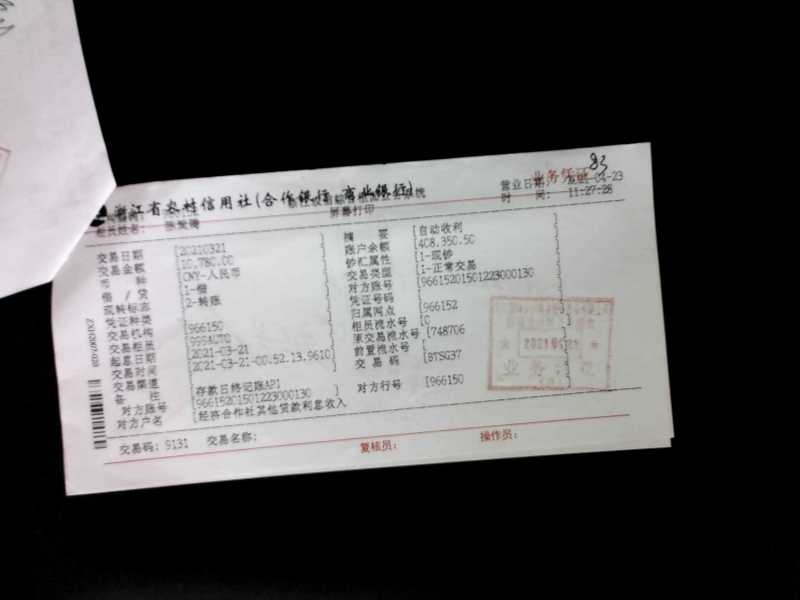 83
业务凭证
浙江省农村信用社(合作银行 商业银行)
营业日期: 2021-04-23
屏幕打印
时 间: 11:27:28
柜员姓名:
交易日期 [20210321 ]
摘 要 [自动收利
交易金额 [10,780.00
账户余额 [408,350.50
币 种 [CNY-人民币
钞汇属性 [1-现钞
借 / 贷 [1-借
交易类型 [1-正常交易
现转标志 [2-转账
对方账号 [96615201501223000130
凭证种类
凭证号码
交易机构 [966150
归属网点 [966152
交易柜员 [999AUTO
柜员流水号 [0
起息日期 [2021-03-21
原交易流水号 [748706
交易时间 [2021-03-21-00.52.13.9610
前置流水号
交易渠道
交 易 码 [BTSG37
备 注 [存款日终记账API
对方账号 [96615201501223000130
对方行号 [966150
对方户名 [经济合作社其他贷款利息收入
交易码: 9131 交易名称:
复核员:
操作员:
业务